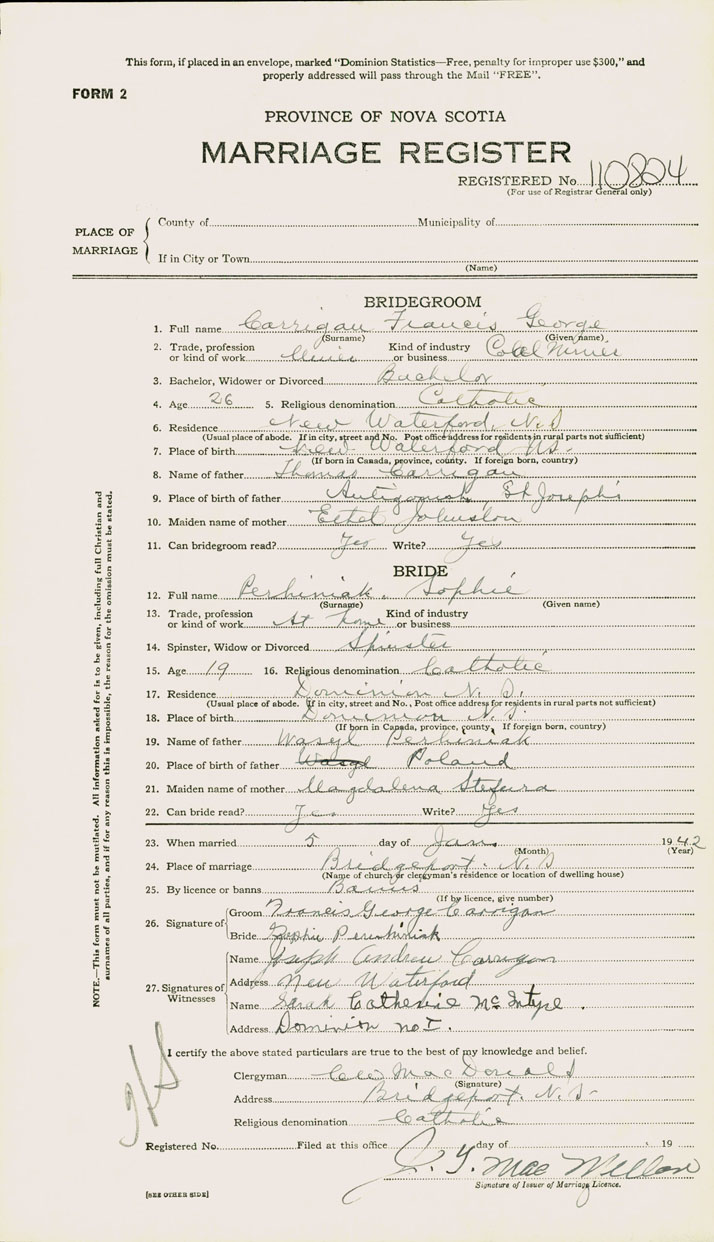 This form, if placed in an envelope, marked "Dominion Statistics—Free, penalty for improper use $300," and
properly addressed will pass through the Mail "FREE".
FORM 2
PROVINCE OF NOVA SCOTIA
MARRIAGE REGISTER
REGISTERED No. 110804
(For use of Registrar General only)
PLACE OF MARRIAGE
County of Municipality of
If in City or Town
(Name)
BRIDEGROOM
1. Full name Carrigan Francis George
(Surname) (Given name)
2. Trade, profession or kind of work Miner Kind of industry or business Coal Miner
3. Bachelor, Widower or Divorced Bachelor
4. Age 26 5. Religious denomination Catholic
6. Residence New Waterford, N.S
(Usual place of abode. If in city, street and No. Post office address for residents in rural parts not sufficient)
7. Place of birth New Waterford NS.
(If born in Canada, province, county. If foreign born, country)
8. Name of father Thomas Carrigan
9. Place of birth of father Antigonish St Joseph's
10. Maiden name of mother Ethel Johnston
11. Can bridegroom read? Yes Write? Yes
BRIDE
12. Full name Perhiniak, Sophie
(Surname) (Given name)
13. Trade, profession or kind of work At home Kind of industry or business
14. Spinster, Widow or Divorced Spinster
15. Age 19 16. Religious denomination Catholic
17. Residence Dominion N. S.
(Usual place of abode. If in city, street and No., Post office address for residents in rural parts not sufficient)
18. Place of birth Dominion N. S.
(If born in Canada, province, county. If foreign born, country)
19. Name of father Wasyl Perhiniak
20. Place of birth of father Wasyl Poland
21. Maiden name of mother Magdalena Stefura
22. Can bride read? Yes Write? Yes
23. When married 5 day of Jan. 1942
(Month) (Year)
24. Place of marriage Bridgeport. N. S
(Name of church or clergyman's residence or location of dwelling house)
25. By licence or banns Banns
(If by licence, give number)
26. Signature of
Groom Francis George Carrigan
Bride Sophie Peruhiniak
27. Signatures of Witnesses
Name Joseph Andrew Carrigan
Address New Waterford
Name Sarah Catherine McIntyre.
Address Dominion No I.
I certify the above stated particulars are true to the best of my knowledge and belief.
Clergyman MacDonald
(Signature)
Address Bridgeport. N. S.
Religious denomination Catholic
Registered No. Filed at this office day of 19
MacMillan
Signature of Issuer of Marriage Licence.
[SEE OTHER SIDE]
NOTE.—This form must not be mutilated. All information asked for is to be given, including full Christian and
surnames of all parties, and if for any reason this is impossible, the reason for the omission must be stated.